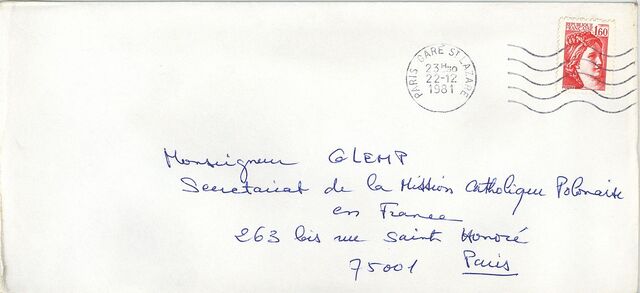 REPUBLIQUE FRANÇAISE 1,60
PARIS GARE ST LAZARE
23H30
22-12
1981
Monseigneur GLEMP
Secretariat de la Mission Catholique Polonaise
en France
263 bis rue Saint Honoré
75001 Paris